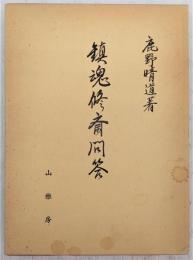 鹿野晴蓮著
鎮魂修斎問答
山雅房